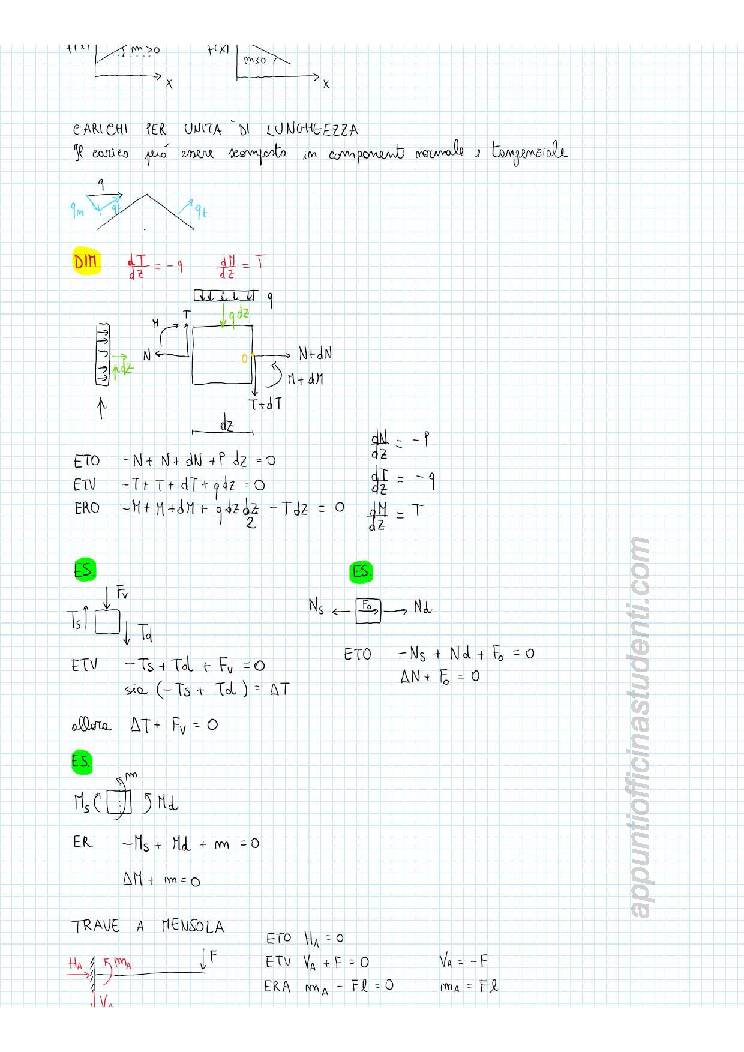 f(x) m>0
f(x) m≤0
x x
CARICHI PER UNITA' DI LUNGHEZZA
Il carico può essere scomposto in componenti normale e tangenziale
q
qn qt qt
DIM dT/dz = -q dM/dz = T
q
T q dz
M
N O N+dN
p dz M+dM
T+dT
dz
ETO -N + N + dN + P dz = 0
ETV -T + T + dT + q dz = 0
ERO -M + M + dM + q dz dz/2 - T dz = 0
dN/dz = -P
dT/dz = -q
dM/dz = T
ES.
Fv
Ts Td
ETV -Ts + Td + Fv = 0
sia (-Ts + Td) = ΔT
allora ΔT + Fv = 0
ES.
Ns Fo Nd
ETO -Ns + Nd + Fo = 0
ΔN + Fo = 0
ES.
m
Ms Md
ER -Ms + Md + m = 0
ΔM + m = 0
TRAVE A MENSOLA
HA mA F
VA
ETO HA = 0
ETV VA + F = 0 VA = -F
ERA mA - Fl = 0 mA = Fl
appuntiofficinastudenti.com